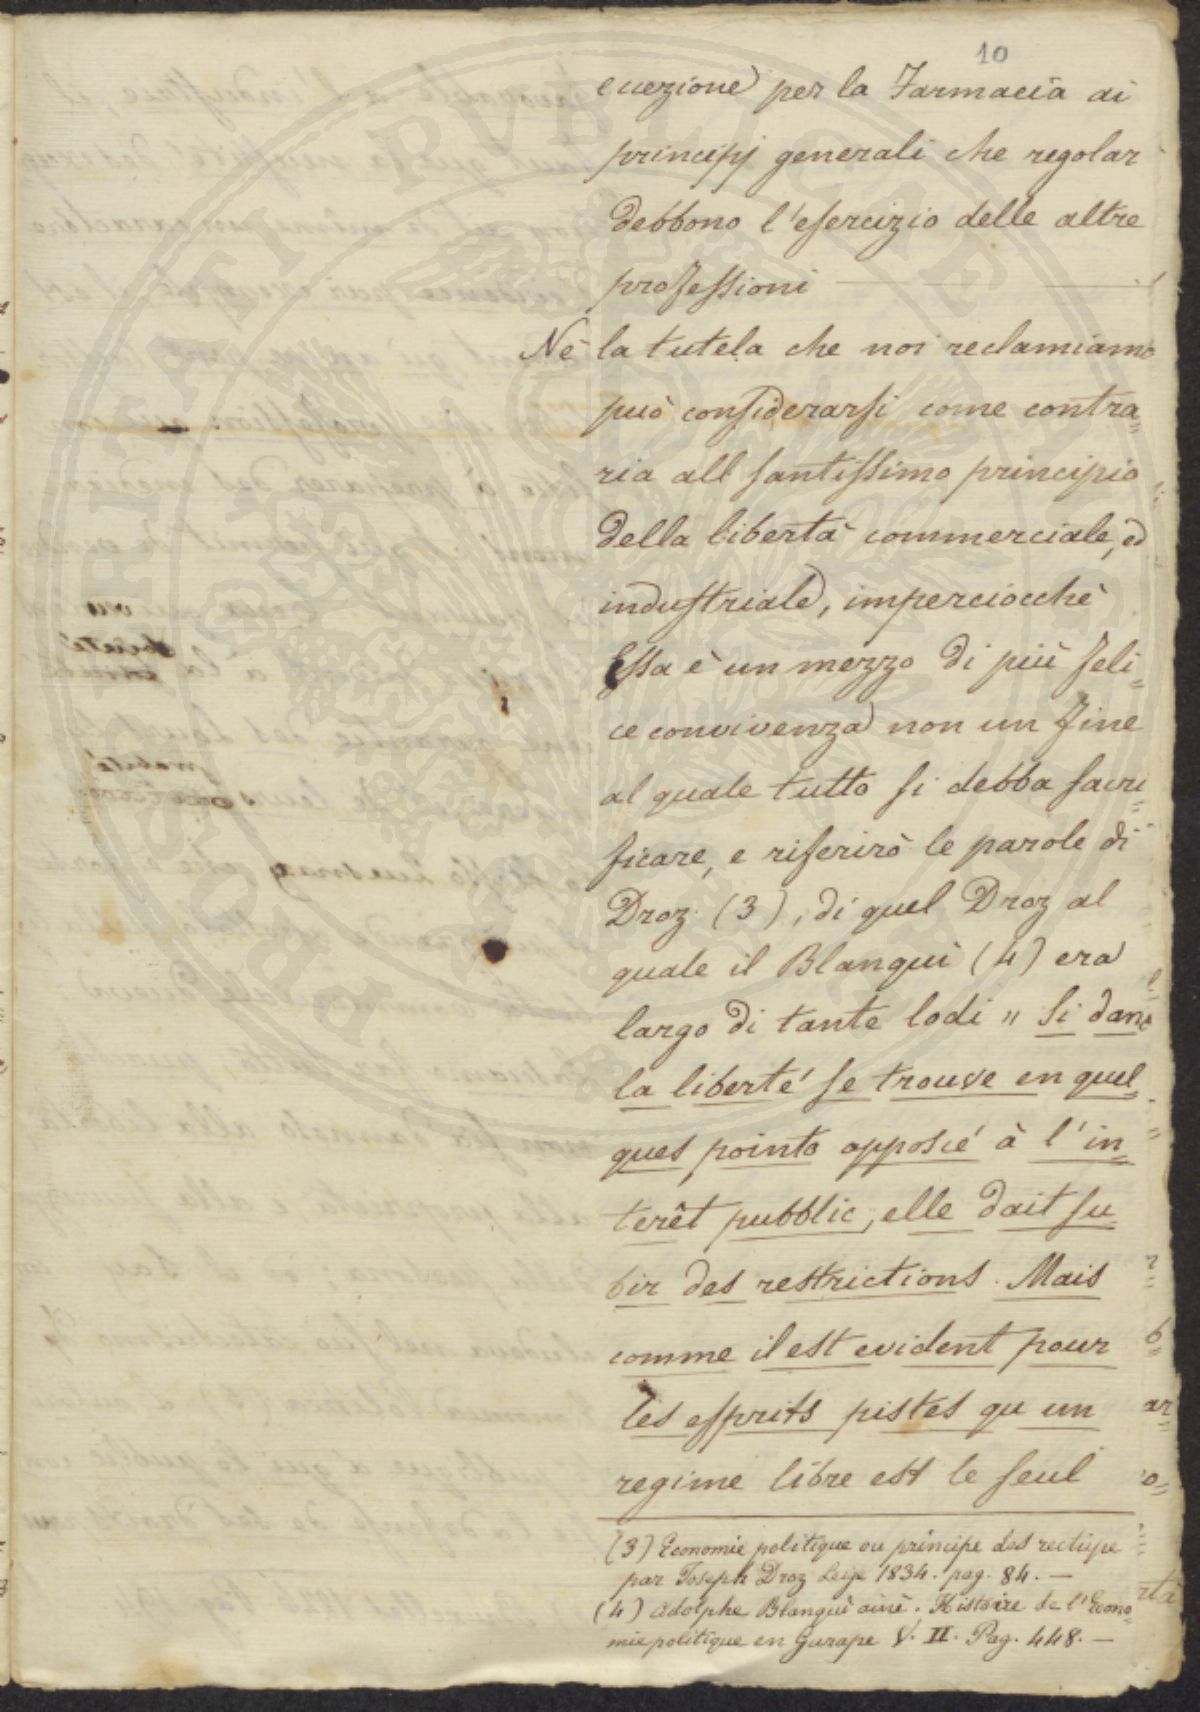 10
eccezione per la Farmacia ai
principj generali che regolar
debbono l'esercizio delle altre
professioni
Nè la tutela che noi reclamiamo
può considerarsi come contra=
ria all santissimo principio
della libertà commerciale, ed
industriale, imperciocchè
Essa è un mezzo di più feli=
ce convivenza non un fine
al quale tutto si debba sacri=
ficare, e riferirò le parole di
Droz (3), di quel Droz al
quale il Blanqui (4) era
largo di tante lodi " Si dans
la liberté se trouve en quel=
ques points opposié à l'in=
terêt pubblic, elle dait su
bir des restrictions. Mais
comme il est evident pour
les esprits pistes qu un
regime libre est le seul
(3) Economie politique ou principe des rectüpe
par Joseph Droz Leije 1834. pag. 84. —
(4) Adolphe Blanqui ainè. Histoire de l'Econo=
mie politique en Gurape V. II. Pag. 448. —